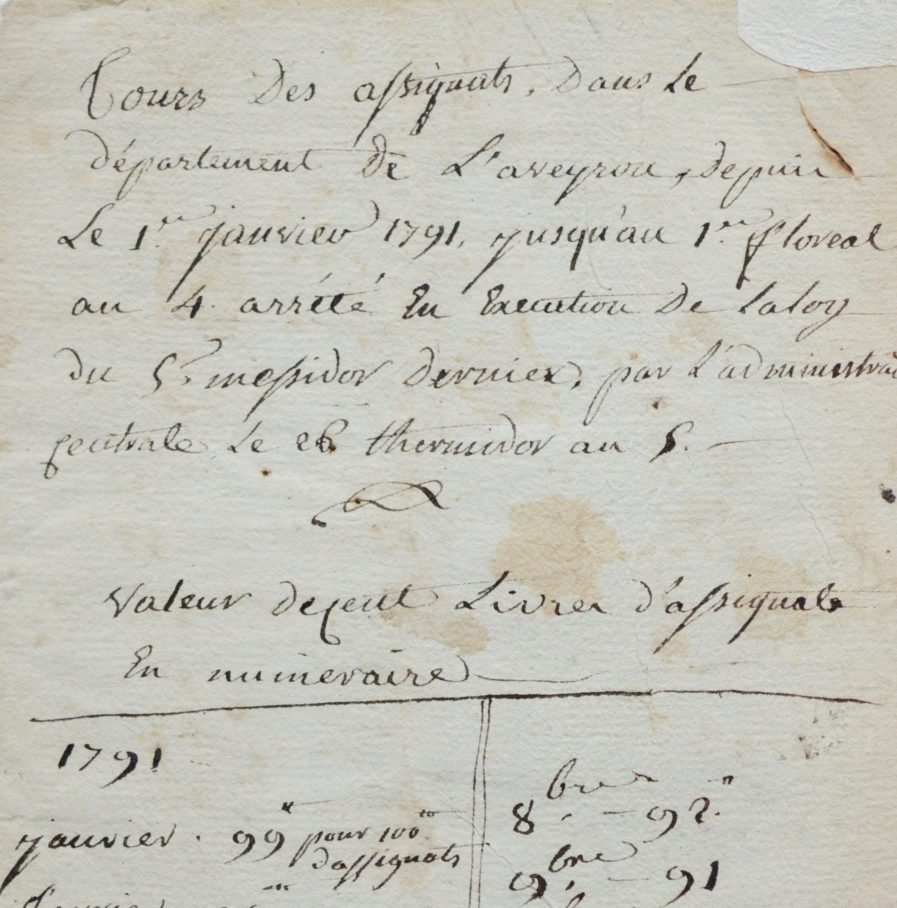 Cours Des assignats, Dans Le
département De L'aveyron, depuis
Le 1er janvier 1791, jusqu'au 1er floreal
an 4. arrété En Execution De Laloy
du 5. messidor dernier, par L'administra
centrale Le 26 thermidor an 5.
Valeur decent Livres d'assignats
En numeraire
1791
janvier. 99" pour 100"
d'assignats
8bre. - 92."
9bre. - 91